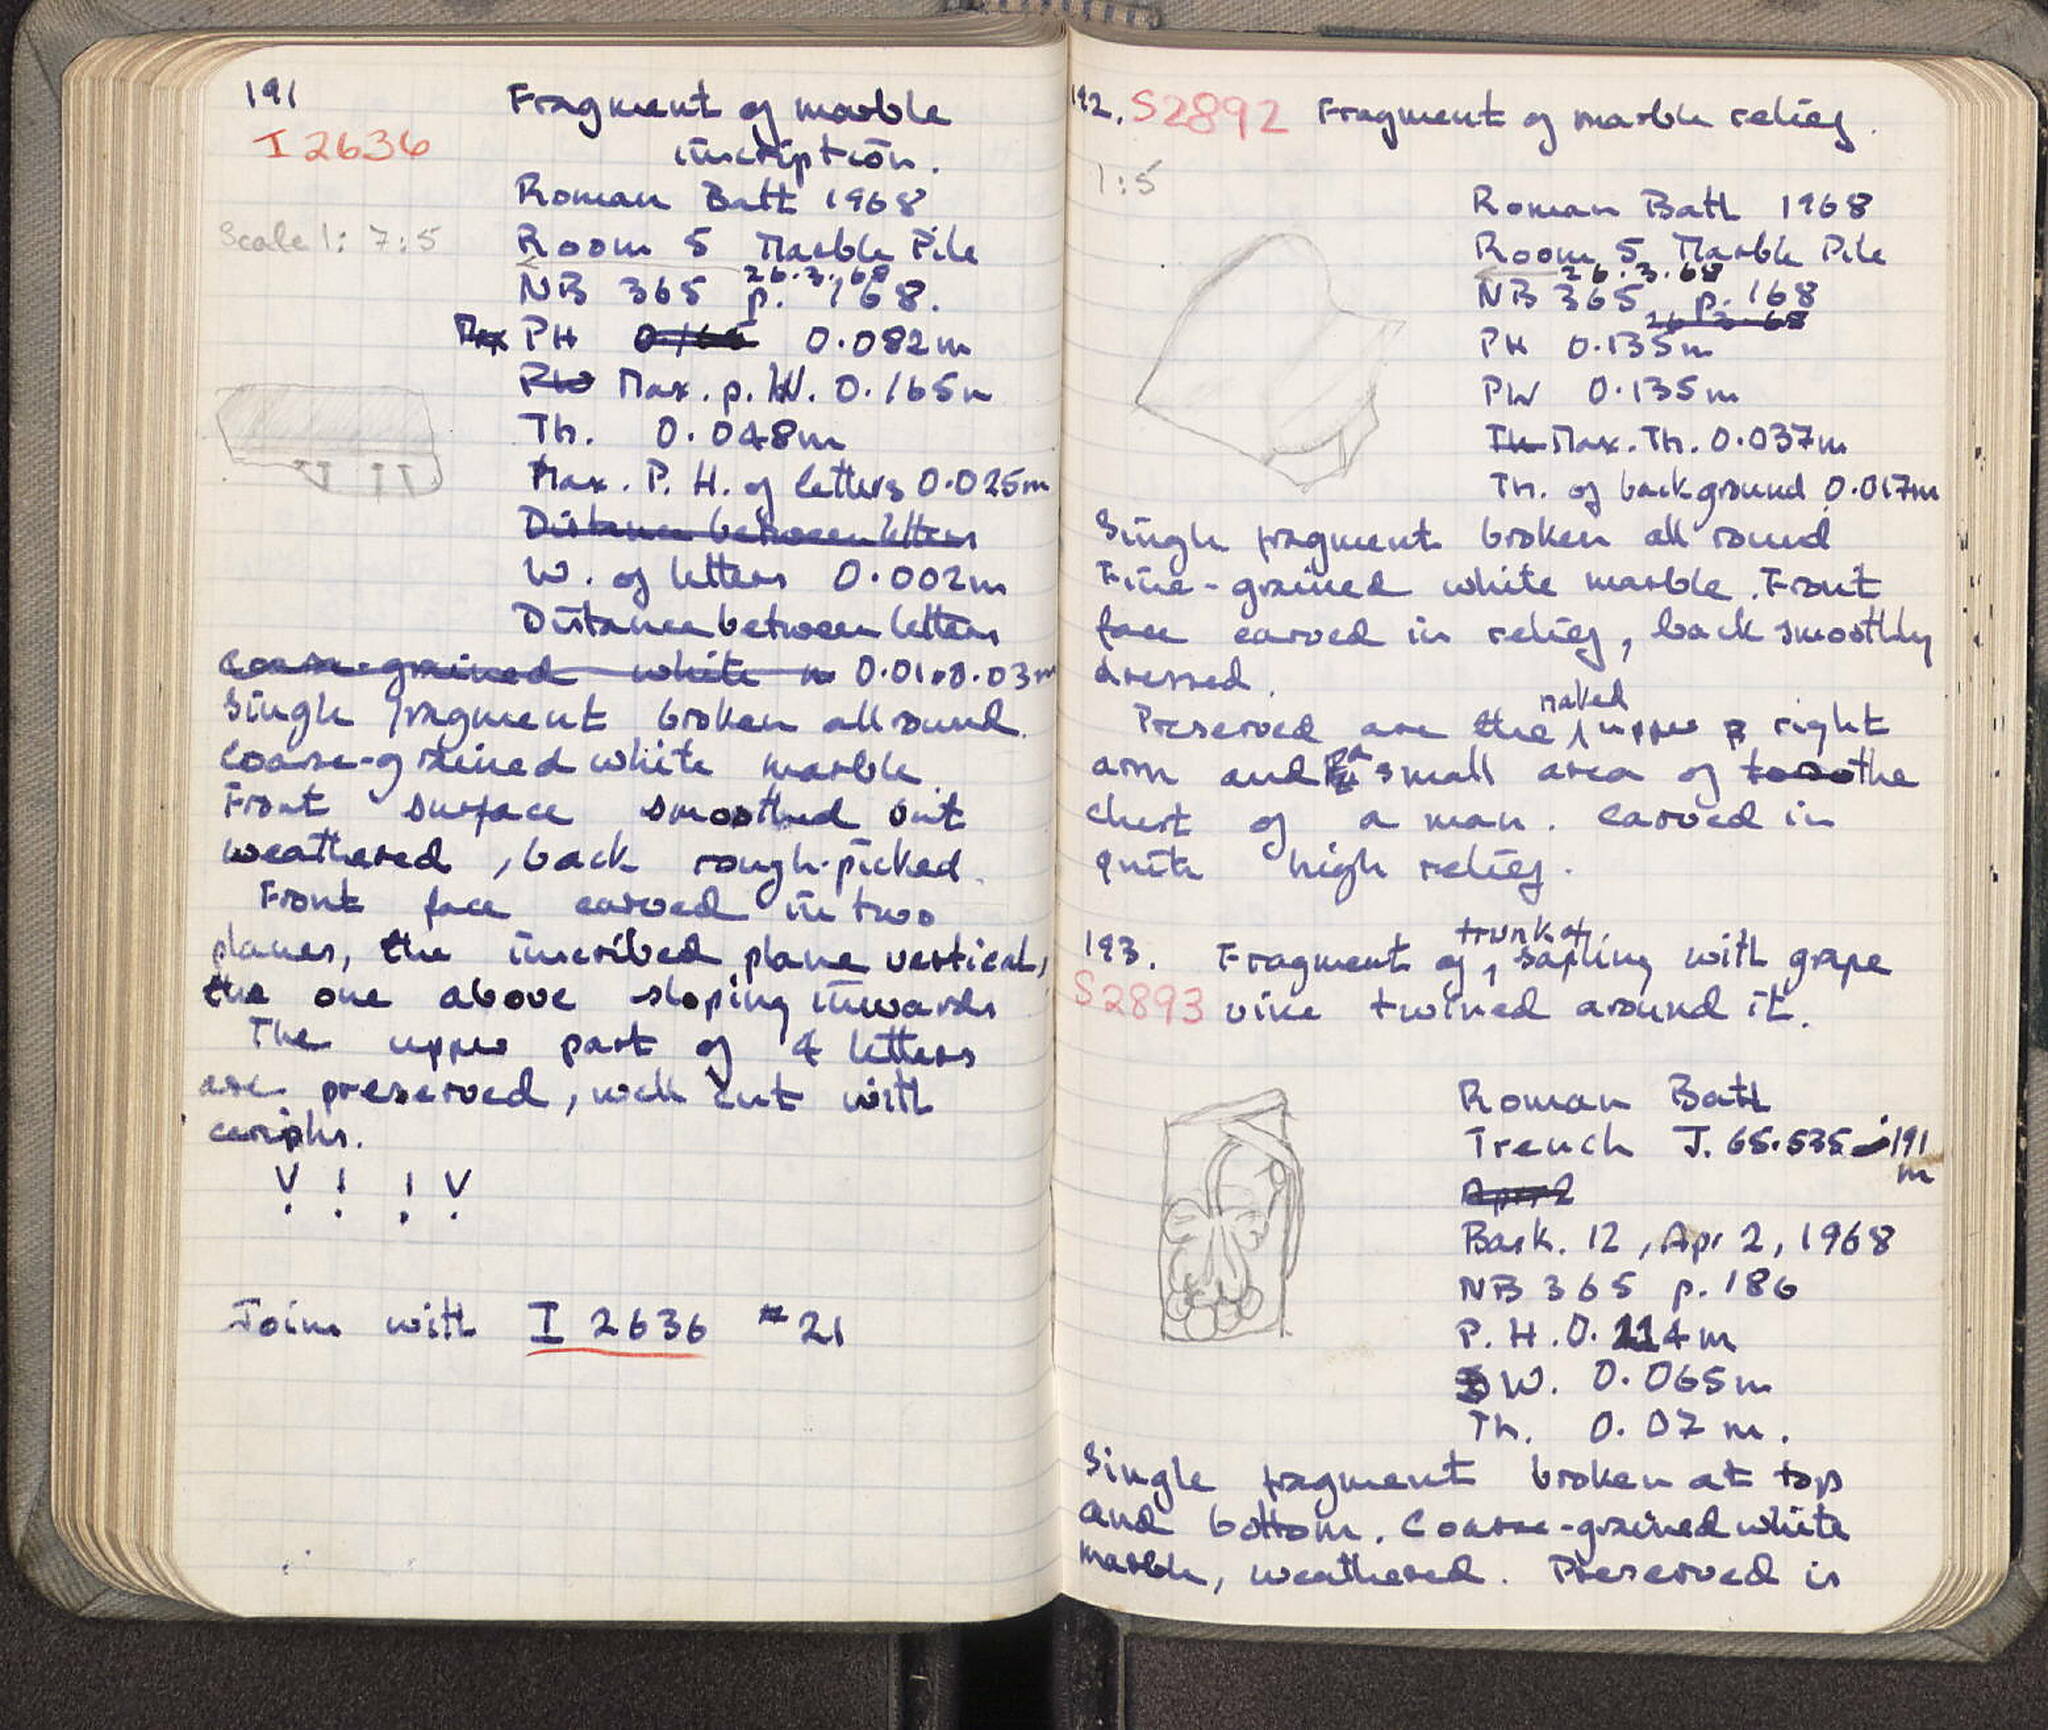 191 Fragment of marble
I 2636 inscription.
Roman Bath 1968
Scale 1: 7:5 Room 5 Marble Pile
26.3.68
NB 365 p. 168.
Max PH 0.165 0.082m
PW Max. p. W. 0.165m
Th. 0.048m
Max. P. H. of letters 0.025m
Distance between letters
W. of letters 0.002m
Distance between letters
Coarse-grained white m 0.01-0.03m
Single fragment broken all round.
Coarse-grained white marble.
Front surface smoothed but
weathered, back rough-picked.
Front face carved in two
planes, the inscribed plane vertical,
the one above sloping inwards
The upper part of 4 letters
are preserved, well cut with
ceriphs.
Joins with I 2636 #21
192. S2892 Fragment of marble relief.
1:5
Roman Bath 1968
Room 5 Marble Pile
26.3.68
NB 365 p. 168
26.3.68
PH 0.135m
PW 0.135m
Th Max. Th. 0.037m
Th. of background 0.017m
Single fragment broken all round
Fine-grained white marble. Front
face carved in relief, back smoothly
dressed.
naked
Preserved are the upper right
arm and a small area of torso the
chest of a man. Carved in
quite high relief.
trunk of
193. Fragment of sapling with grape
S2893 vine twined around it.
Roman Bath
Trench J. 65.535 - 191
m
April 2
Bask. 12, Apr 2, 1968
NB 365 p. 186
P. H. 0.114m
W. 0.065m
Th. 0.07m.
Single fragment broken at top
and bottom. Coarse-grained white
marble, weathered. Preserved is